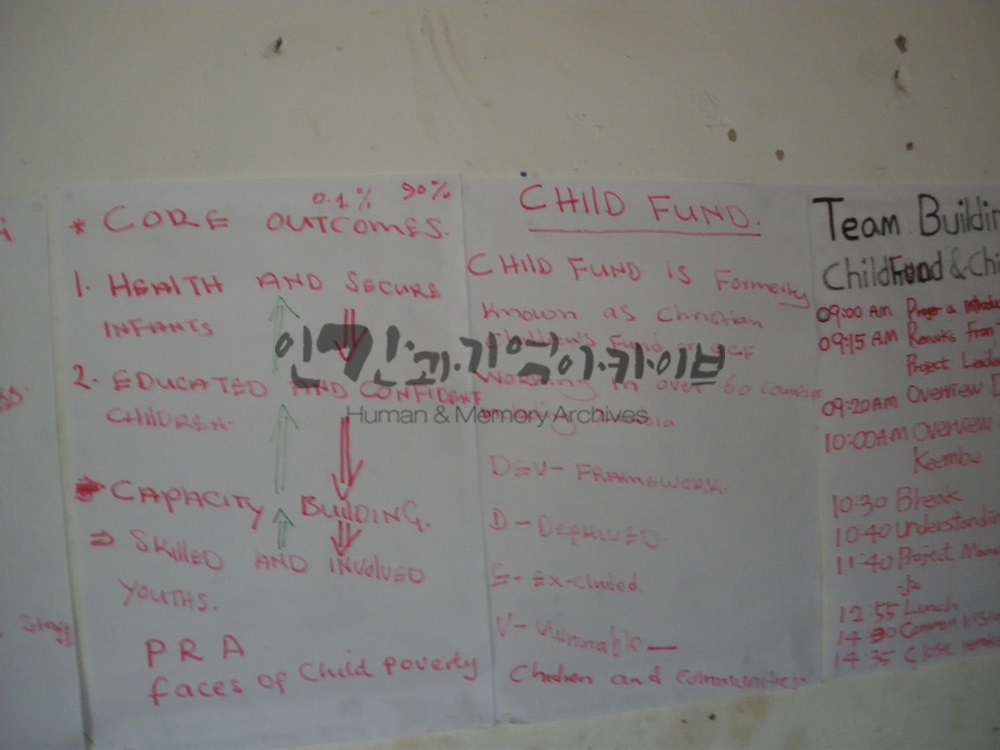 0.1% 90%
* CORE OUTCOMES.
1. HEALTH AND SECURE
INFANTS
2. EDUCATED AND CONFIDENT
CHILDREN.
CAPACITY BUILDING.
⇒ SKILLED AND INVOLVED
YOUTHS.
PRA
faces of Child poverty
CHILD FUND.
CHILD FUND is Formerly
Known as Christian
Fund or CCF
Working in over 60 countries
DEV- FRAMEWORK.
D- DEPRIVED.
E- Ex-cluded.
V- Vulnerable —
Children and Communities.
Team Buildin
ChildFund & Chi
09:00 AM Prayer a
09:15 AM Remarks From
Project Leade
09:20AM Overview
10:00AM Overview
Keembe
10:30 Break
10:40 Understandi
11:40 Project Mana
12:55 Lunch
14:00 Common
14:35 Close
Stay
인간과.기억아.카.이브
Human & Memory Archives